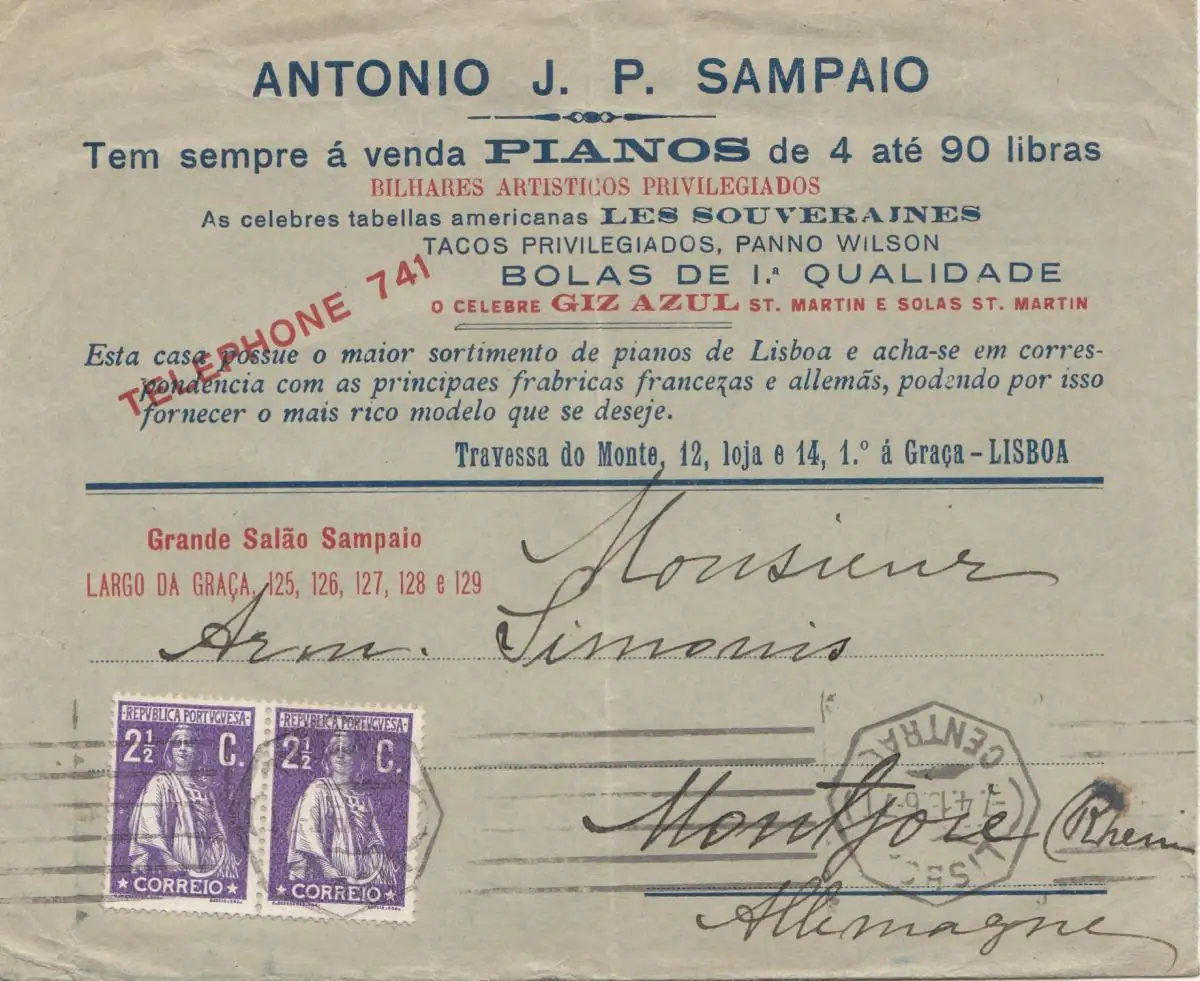 ANTONIO J. P. SAMPAIO
Tem sempre á venda PIANOS de 4 até 90 libras
BILHARES ARTISTICOS PRIVILEGIADOS
As celebres tabellas americanas LES SOUVERAINES
TACOS PRIVILEGIADOS, PANNO WILSON
BOLAS DE 1.ª QUALIDADE
O CELEBRE GIZ AZUL ST. MARTIN E SOLAS ST. MARTIN
TELEPHONE 741
Esta casa possue o maior sortimento de pianos de Lisboa e acha-se em corres-
pondencia com as principaes frabricas francezas e allemãs, podendo por isso
fornecer o mais rico modelo que se deseje.
Travessa do Monte, 12, loja e 14, 1.º á Graça - LISBOA
Grande Salão Sampaio
LARGO DA GRAÇA, 125, 126, 127, 128 e 129
Monsieur
Arm. Simonis
REPVBLICA PORTVGVESA
2½ C.
CORREIO
REPVBLICA PORTVGVESA
2½ C.
CORREIO
CENTRAL
Montjoie (Rhein
Allemagne